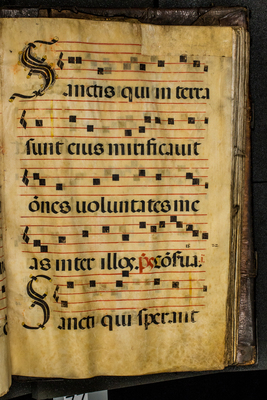 Sanctis qui in terra
sunt eius mirificavit
oẽs voluntates me
as inter illoꝝ. p̃s. cõſ̃ua.
Sancti qui sperant